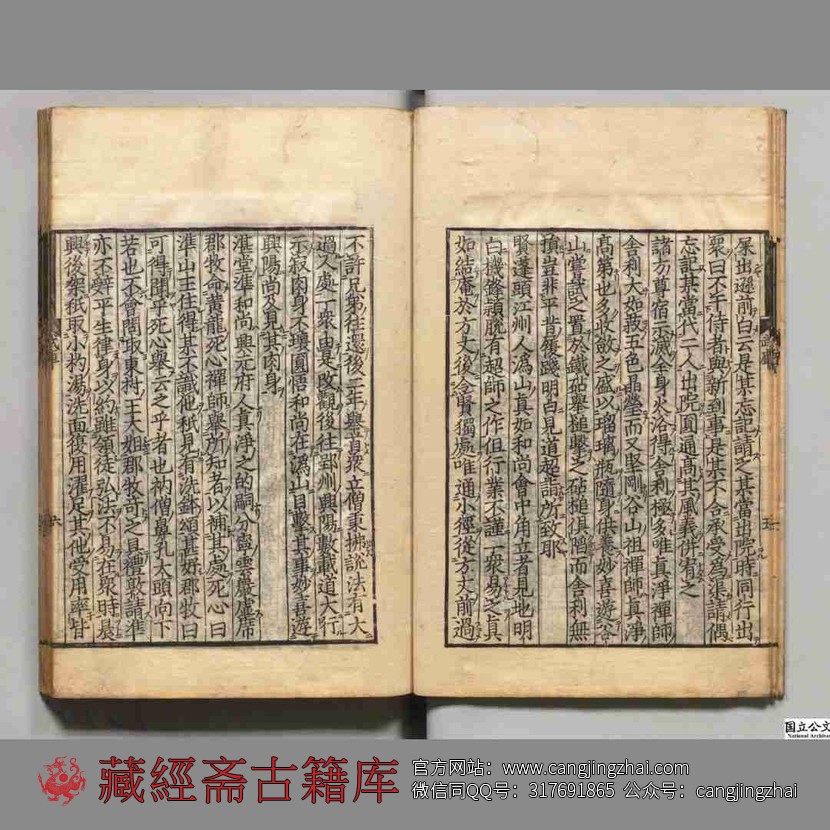 屎出遜前白云是某忘記請之某當出院時同行出
眾曰不干侍者與新到事是某不合承受為渠請偶
忘記某當代二人出院圓通高其風義併宥之
諸方尊宿示滅全身火浴得舍利極多唯真淨禪師
舍利大如菽五色晶瑩而又堅剛谷山祖禪師真淨
高弟也多收斂之盛以瑠璃瓶隨身供養妙喜遊谷
山嘗試之置於鐵砧舉槌擊之砧槌俱陷而舍利無
損豈非平昔履踐明白見道超詣所致耶
賢蓬頭江州人溈山真如和尚會中角立者見地明
白機鋒頴脫有超師之作但行業不謹一眾易之真
如結庵於方丈後令賢獨處唯通小徑從方丈前過
不許兄弟往還後二年舉首眾立僧秉拂說法有大
過人處一眾由是改觀後往郢州興陽數載道大行
示寂肉身不壞圓悟和尚在溈山目擊其事妙喜遊
興陽尚及見其肉身
湛堂準和尚興元府人真淨之的嗣分寧雲巖虛席
郡牧命黃龍死心禪師舉所知者以補其處死心曰
準山主住得某不識他秖見有洗鉢頌甚好郡牧曰
可得聞乎死心舉云之乎者也衲僧鼻孔大頭向下
若也不會問取東村王大姐郡牧奇之具禮敦請準
亦不辭平生律身以約雖領徒弘法不易在眾時晨
興後架秖取小杓湯洗面復用濯足其他受用率皆
国立公文
National Archives
藏經斋古籍库
官方网站：www.cangjingzhai.com
微信同QQ号：317691865 公众号：cangjingzhai